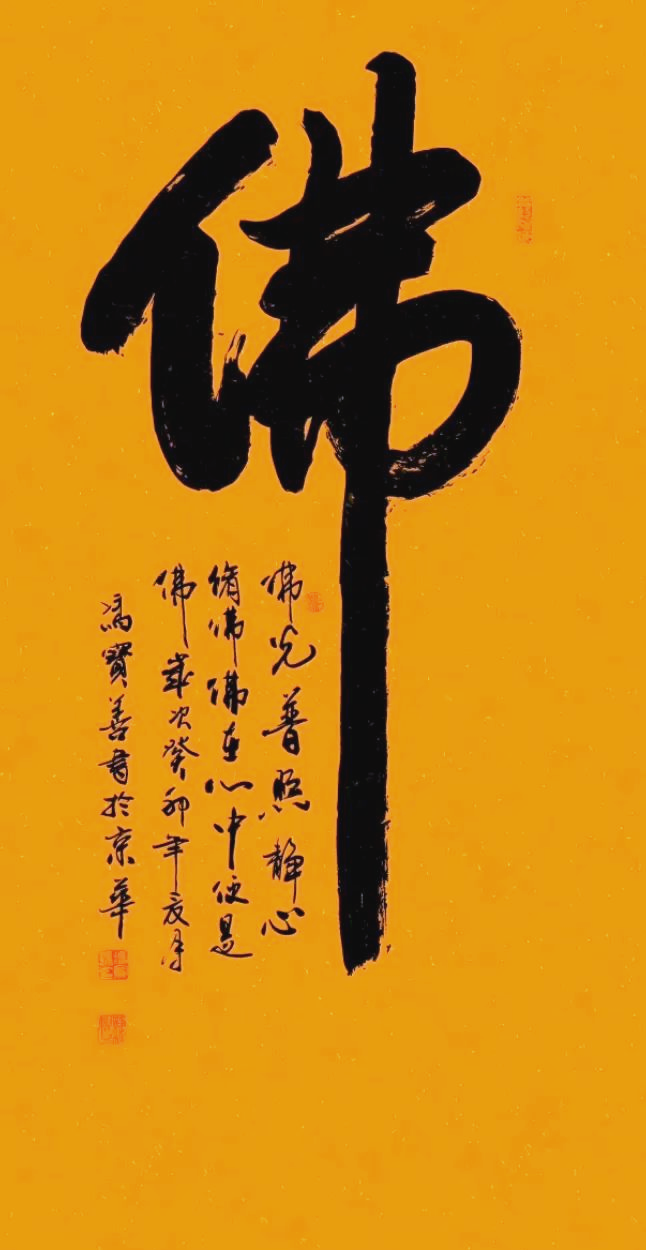 佛
佛光普照静心
修佛佛在心中便是
佛歲次癸卯年夏月
馮寶善書於京華